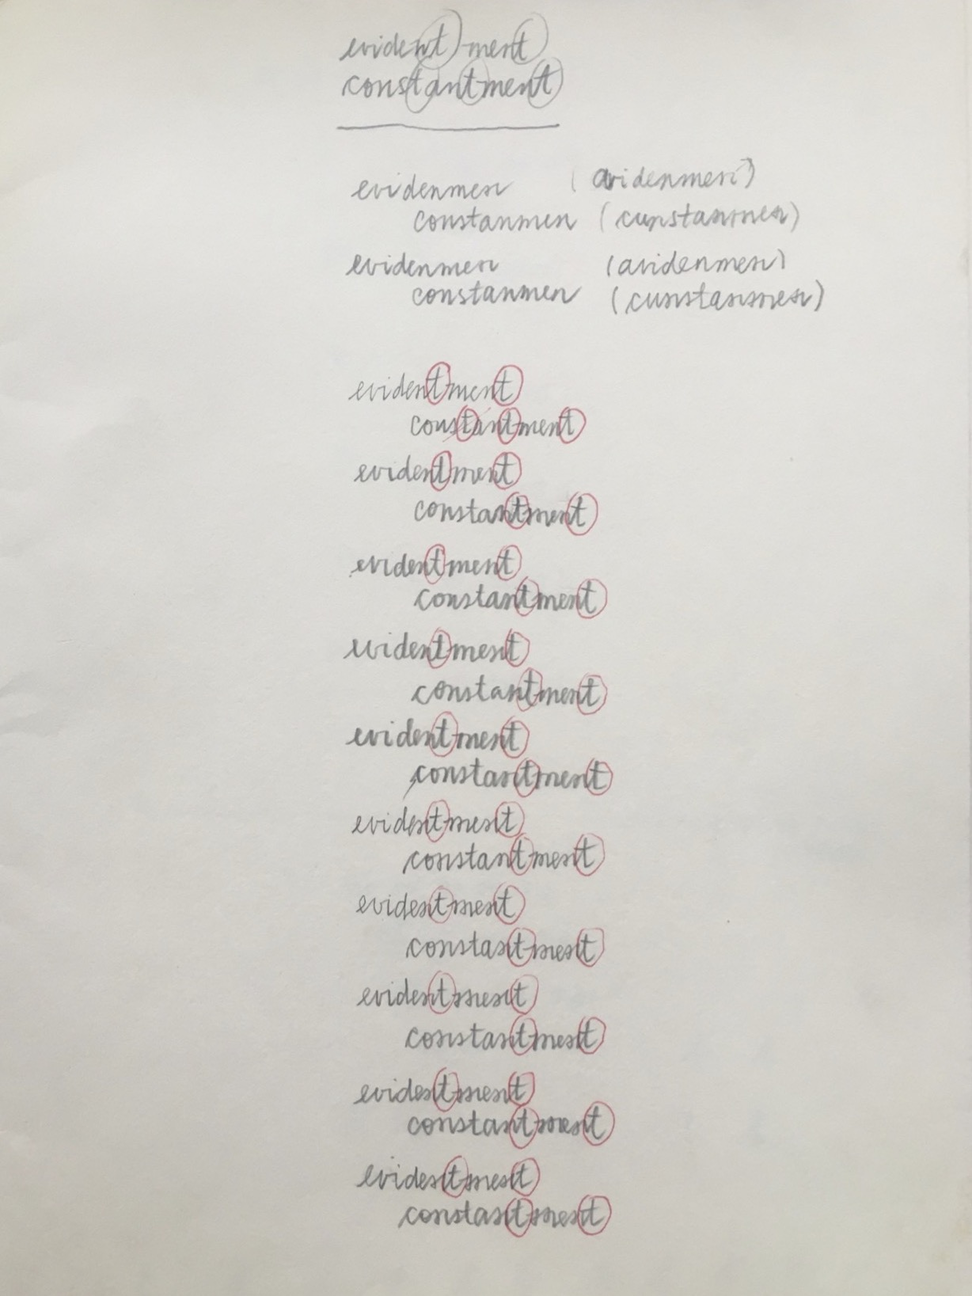 evident-ment
constantment
evidenmen (avidenmen)
constanmen (cunstanmen)
evidenmen (avidenmen)
constanmen (cunstanmen)
evidentment
constantment
evidentment
constantment
evidentment
constantment
evidentment
constantment
evidentment
constantment
evidentment
constantment
evidentment
constantment
evidentment
constantment
evidentment
constantment
evidentment
constantment